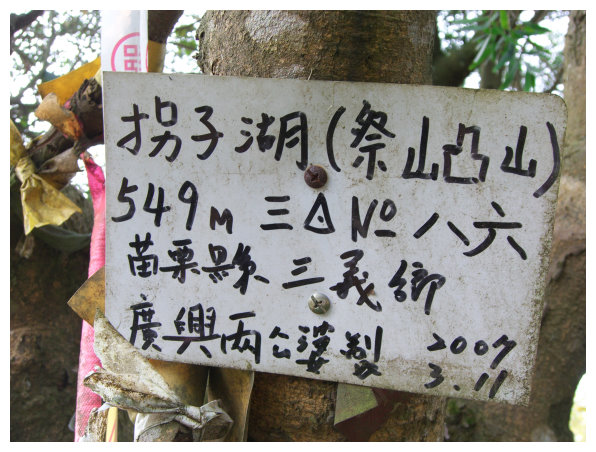 拐子湖(祭山凸山)
549M 三△No 八六
苗栗縣 三義鄉
廣興兩公婆製 2007
3.11